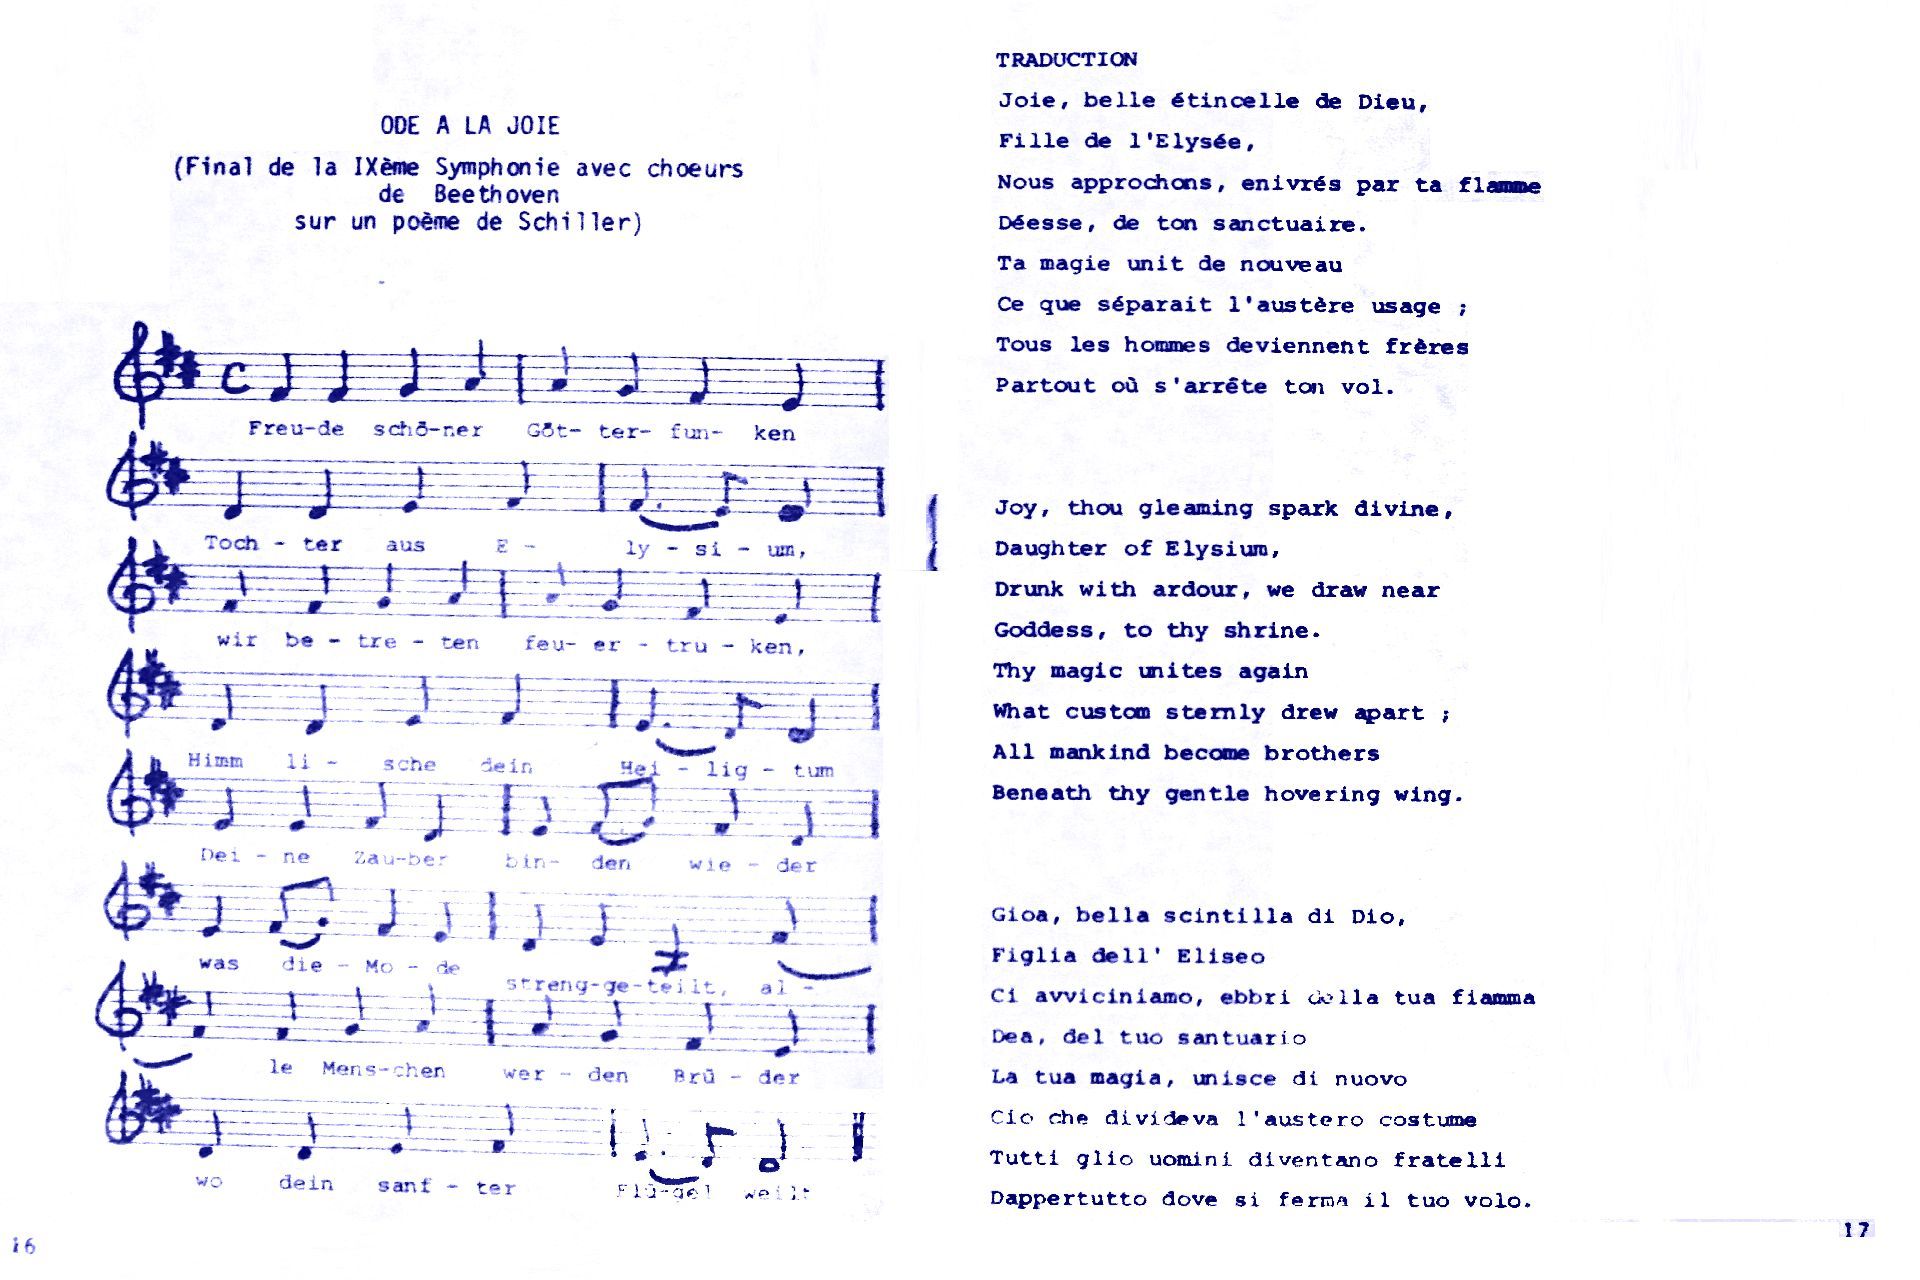 ODE A LA JOIE
(Final de la IXème Symphonie avec choeurs
de Beethoven
sur un poème de Schiller)
Freu-de schö-ner Göt- ter- fun- ken
Toch - ter aus E - ly - si - um,
wir be - tre - ten feu- er - tru - ken,
Himm li - sche dein Hei - lig - tum
Dei - ne Zau-ber bin- den wie - der
was die - Mo - de streng-ge-teilt, al -
le Mens-chen wer - den Brü - der
wo dein sanf - ter Flü-gel weilt
16
TRADUCTION
Joie, belle étincelle de Dieu,
Fille de l'Elysée,
Nous approchons, enivrés par ta flamme
Déesse, de ton sanctuaire.
Ta magie unit de nouveau
Ce que séparait l'austère usage ;
Tous les hommes deviennent frères
Partout où s'arrête ton vol.
Joy, thou gleaming spark divine,
Daughter of Elysium,
Drunk with ardour, we draw near
Goddess, to thy shrine.
Thy magic unites again
What custom sternly drew apart ;
All mankind become brothers
Beneath thy gentle hovering wing.
Gioa, bella scintilla di Dio,
Figlia dell' Eliseo
Ci avviciniamo, ebbri della tua fiamma
Dea, del tuo santuario
La tua magia, unisce di nuovo
Cio che divideva l'austero costume
Tutti glio uomini diventano fratelli
Dappertutto dove si ferma il tuo volo.
17